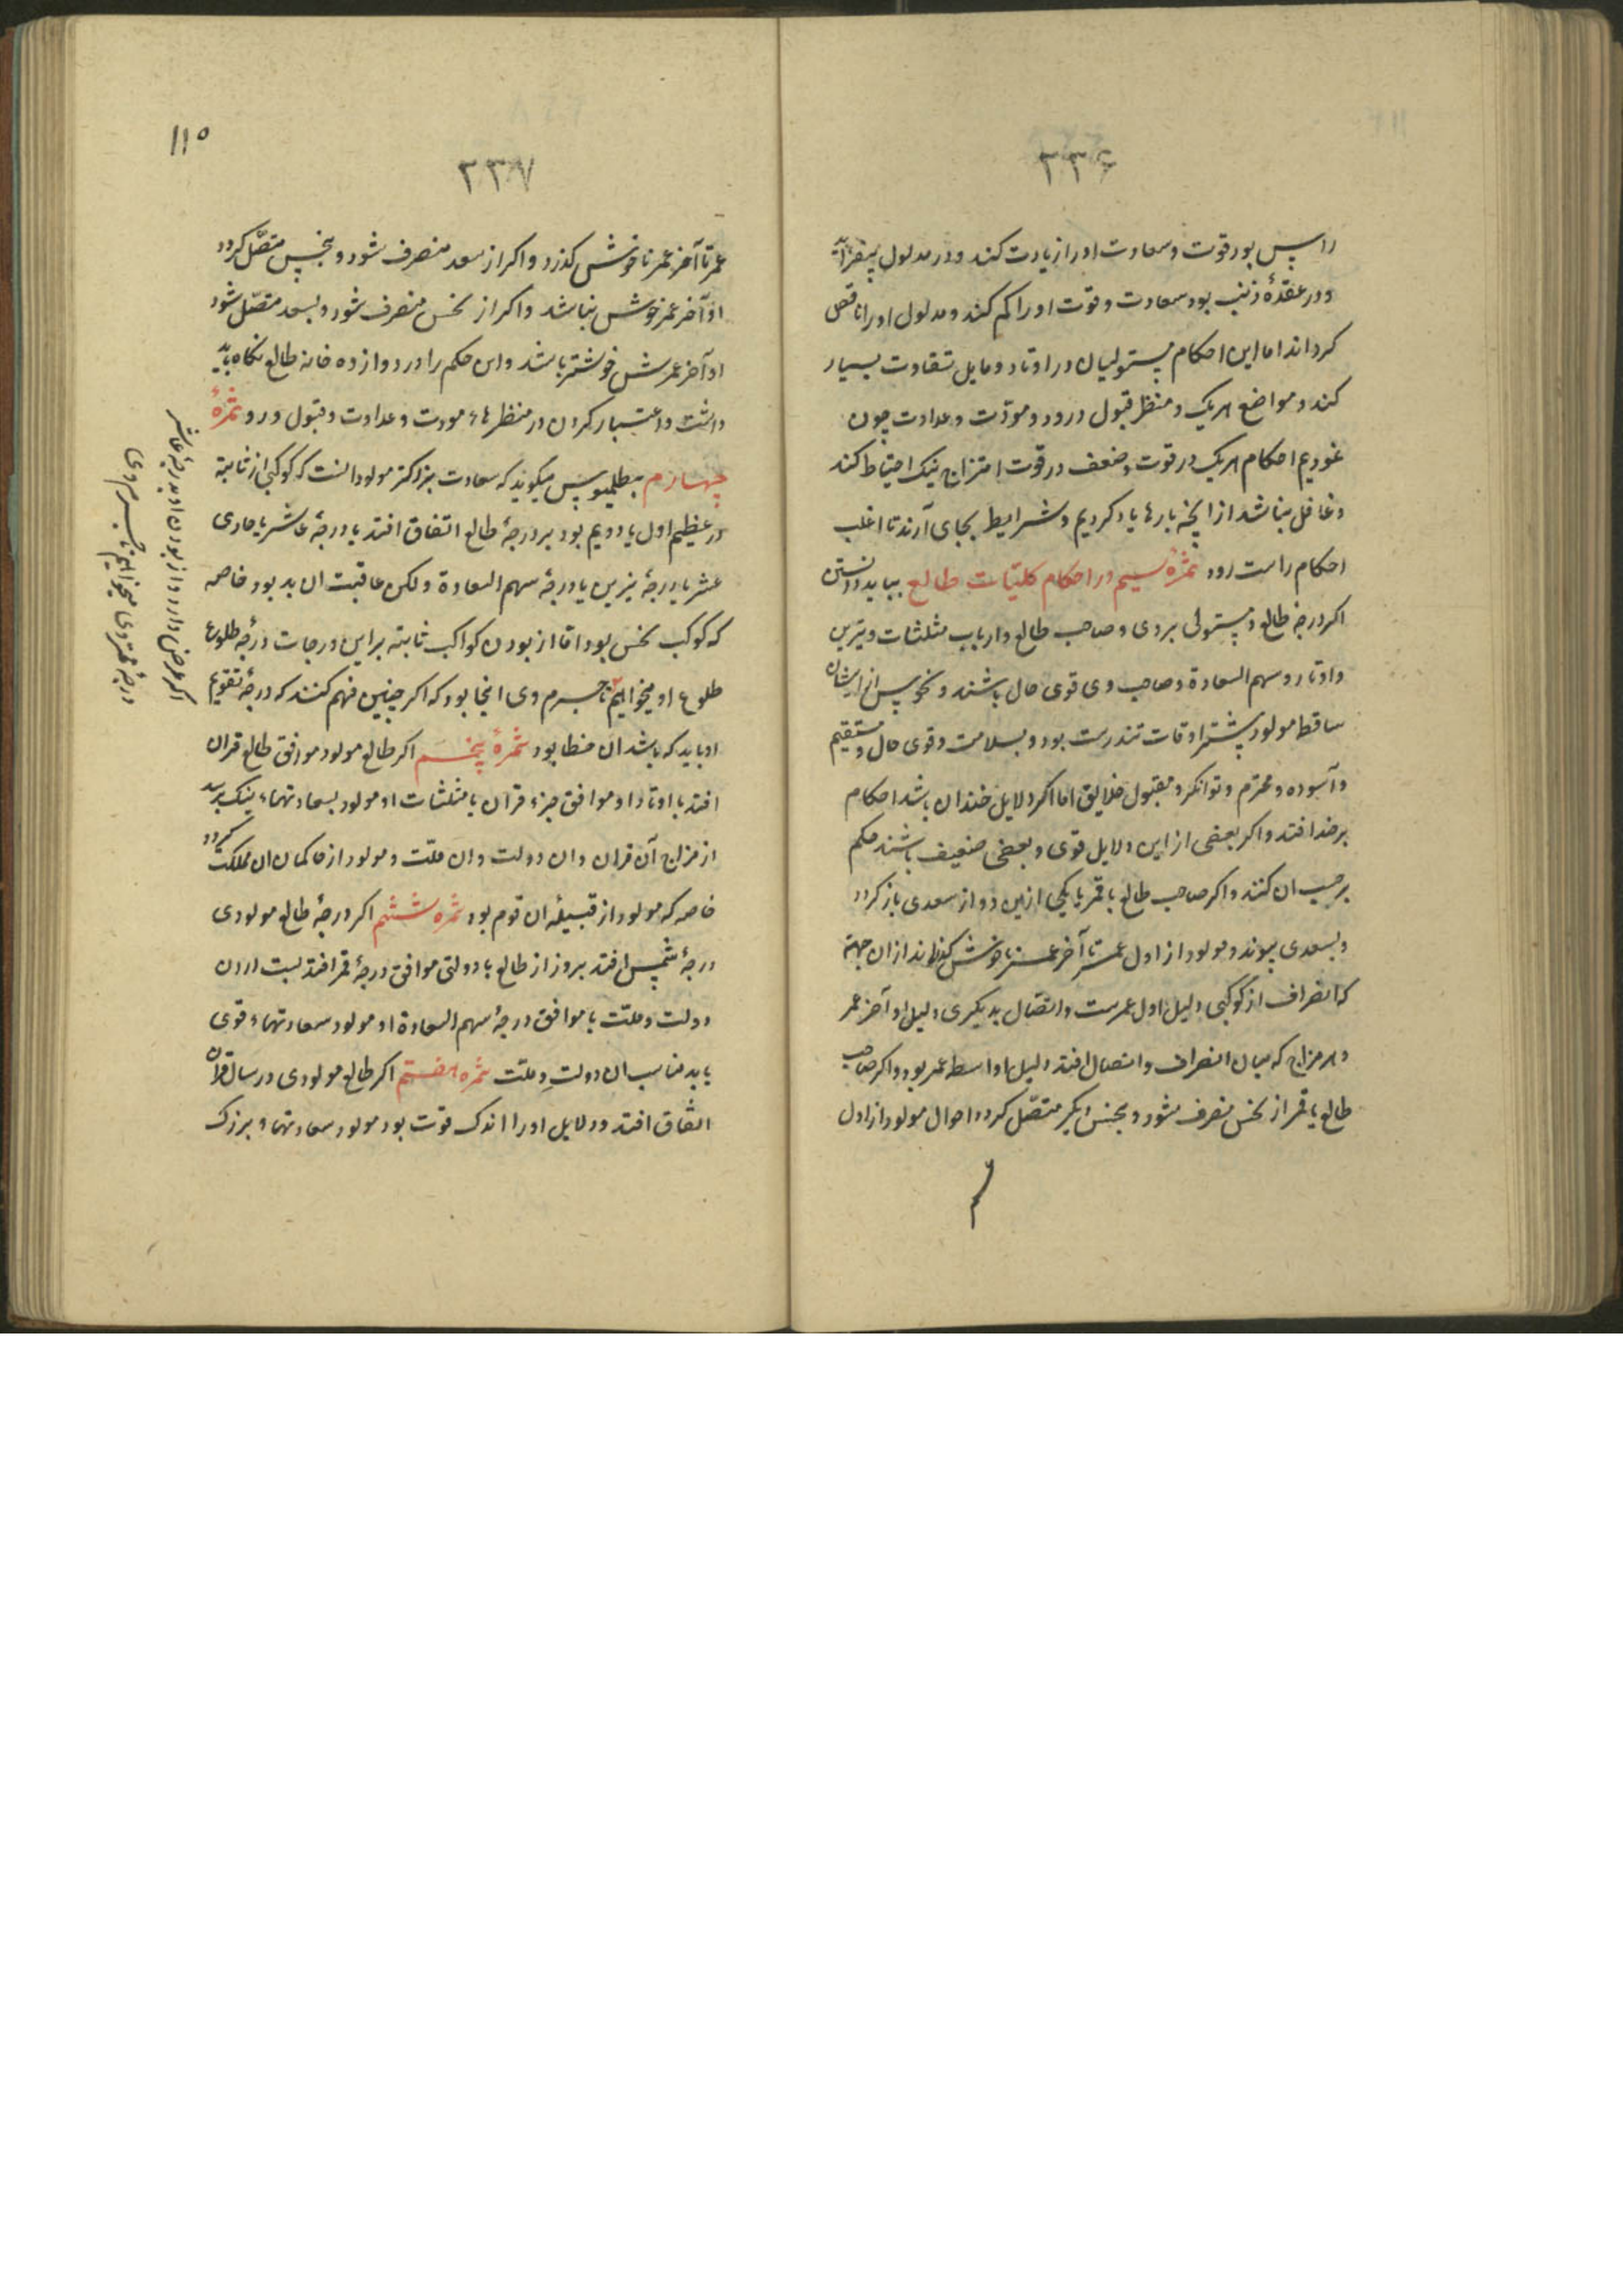 ۲۳۶
راس بود قوت و سعادت او را زیادت کند و در مدلول بیفزاید
و در عقدهٔ ذنب بود سعادت و قوت او را کم کند و مدلول او را ناقص
کرداند اما این احکام مستولیان در اوتاد و مایل تفاوت بسیار
کند و مواضع هریک و منظر قبول و رد و مودّت و عداوت چون
غوریم احکام هریک در قوت و ضعف در قوت امتزاج نیک احتیاط کند
و غافل نباشد از انچه بارها یاد کردیم و شرایط بجای آرند تا اغلب
احکام راست رود ثمرهٔ سیم در احکام کلیّات طالع بباید دانستن
اکر درجهٔ طالع و مستولی بر وی و صاحب طالع و ارباب مثلثات و نیرین
و اوتاد و سهم السعادة و صاحب وی قوی حال باشند و نحوس از ایشان
ساقط مولود بیشتر اوقات تندرست بود و بسلامت و قوی حال و مستقیم
و آسوده و محترم و توانکر و مقبول خلایق اما اکر دلایل ضد ان باشد احکام
بر ضد افتد و اکر بعضی از این دلایل قوی و بعضی ضعیف باشند حکم
برحسب ان کنند و اکر صاحب طالع یا قمر یا یکی ازین دو از سعدی باز کردد
و بسعدی پیوندد مولود از اول عمر تا آخر عمر ناخوش کذراند از ان جهة
که انصراف از کوکبی دلیل اول عمرست و اتصال بدیکری دلیل او آخر عمر
و هر مزاج که میان انصراف و اتصال افتد دلیل اواسط عمر بود و اکر صاحب
طالع یا قمر از نحس منصرف شود و بنحس دیکر متصّل کردد احوال مولود از اول
۱۱۵
۲۳۷
عمر تا آخر عمر ناخوش کذرد و اکر از سعد منصرف شود و بنحس متصّل کردد
او آخر عمر خوش نباشد و اکر از نحس منصرف شود و بسعد متصّل شود
او آخر عمرش خوشتر باشد و این حکم را در دوازده خانه طالع نکاه باید
داشت و اعتبار کردن در منظرهاء مودت و عداوت و قبول و رد و ثمرهٔ
چهارم بطلمیوس میکوید که سعادت بزرکتر مولود انست که کوکبی از ثابتة
در عظیم اول یا دویم بود بر درجهٔ طالع اتفاق افتد یا درجهٔ عاشر یا حادی
عشر یا درجهٔ نیرین یا درجهٔ سهم السعادة ولکن عاقبت ان بد بود خاصه
که کوکب نحس بود اما از بودن کواکب ثابته بر این درجات درجهٔ طلوع
طلوع او میخواهیم تا جرم وی انجا بود که اکر چنین فهم کنند که درجهٔ تقویم
او باید که باشد ان خطا بود ثمرهٔ پنجم اکر طالع مولود موافق طالع قران
افتد یا اوتاد او موافق جزء قران یا مثلثات او مولود بسعادتهاء نیک برسد
از مزاج آن قران و ان دولت و ان ملّت و مولود از حاکمان ان مملکت کردد
خاصه که مولود از قبیلهٔ ان قوم بود ثمره ششم اکر درجهٔ طالع مولودی
درجهٔ شمس افتد بروز از طالع یا دولتی موافق درجهٔ قمر افتد بشب از ان
دولت و ملّت یا موافق درجهٔ سهم السعادة او مولود سعادتهاء قوی
یابد مناسب ان دولت و ملّت ثمره هفتم اکر طالع مولودی در سال قران
اتفاق افتد و دلایل او را اندک قوت بود مولود سعادتهاء بزرک
اکر عرض دارد و از بودن او بدرجهٔ عاشر
درجهٔ ممرّ وی میخواهیم تا جرم وی